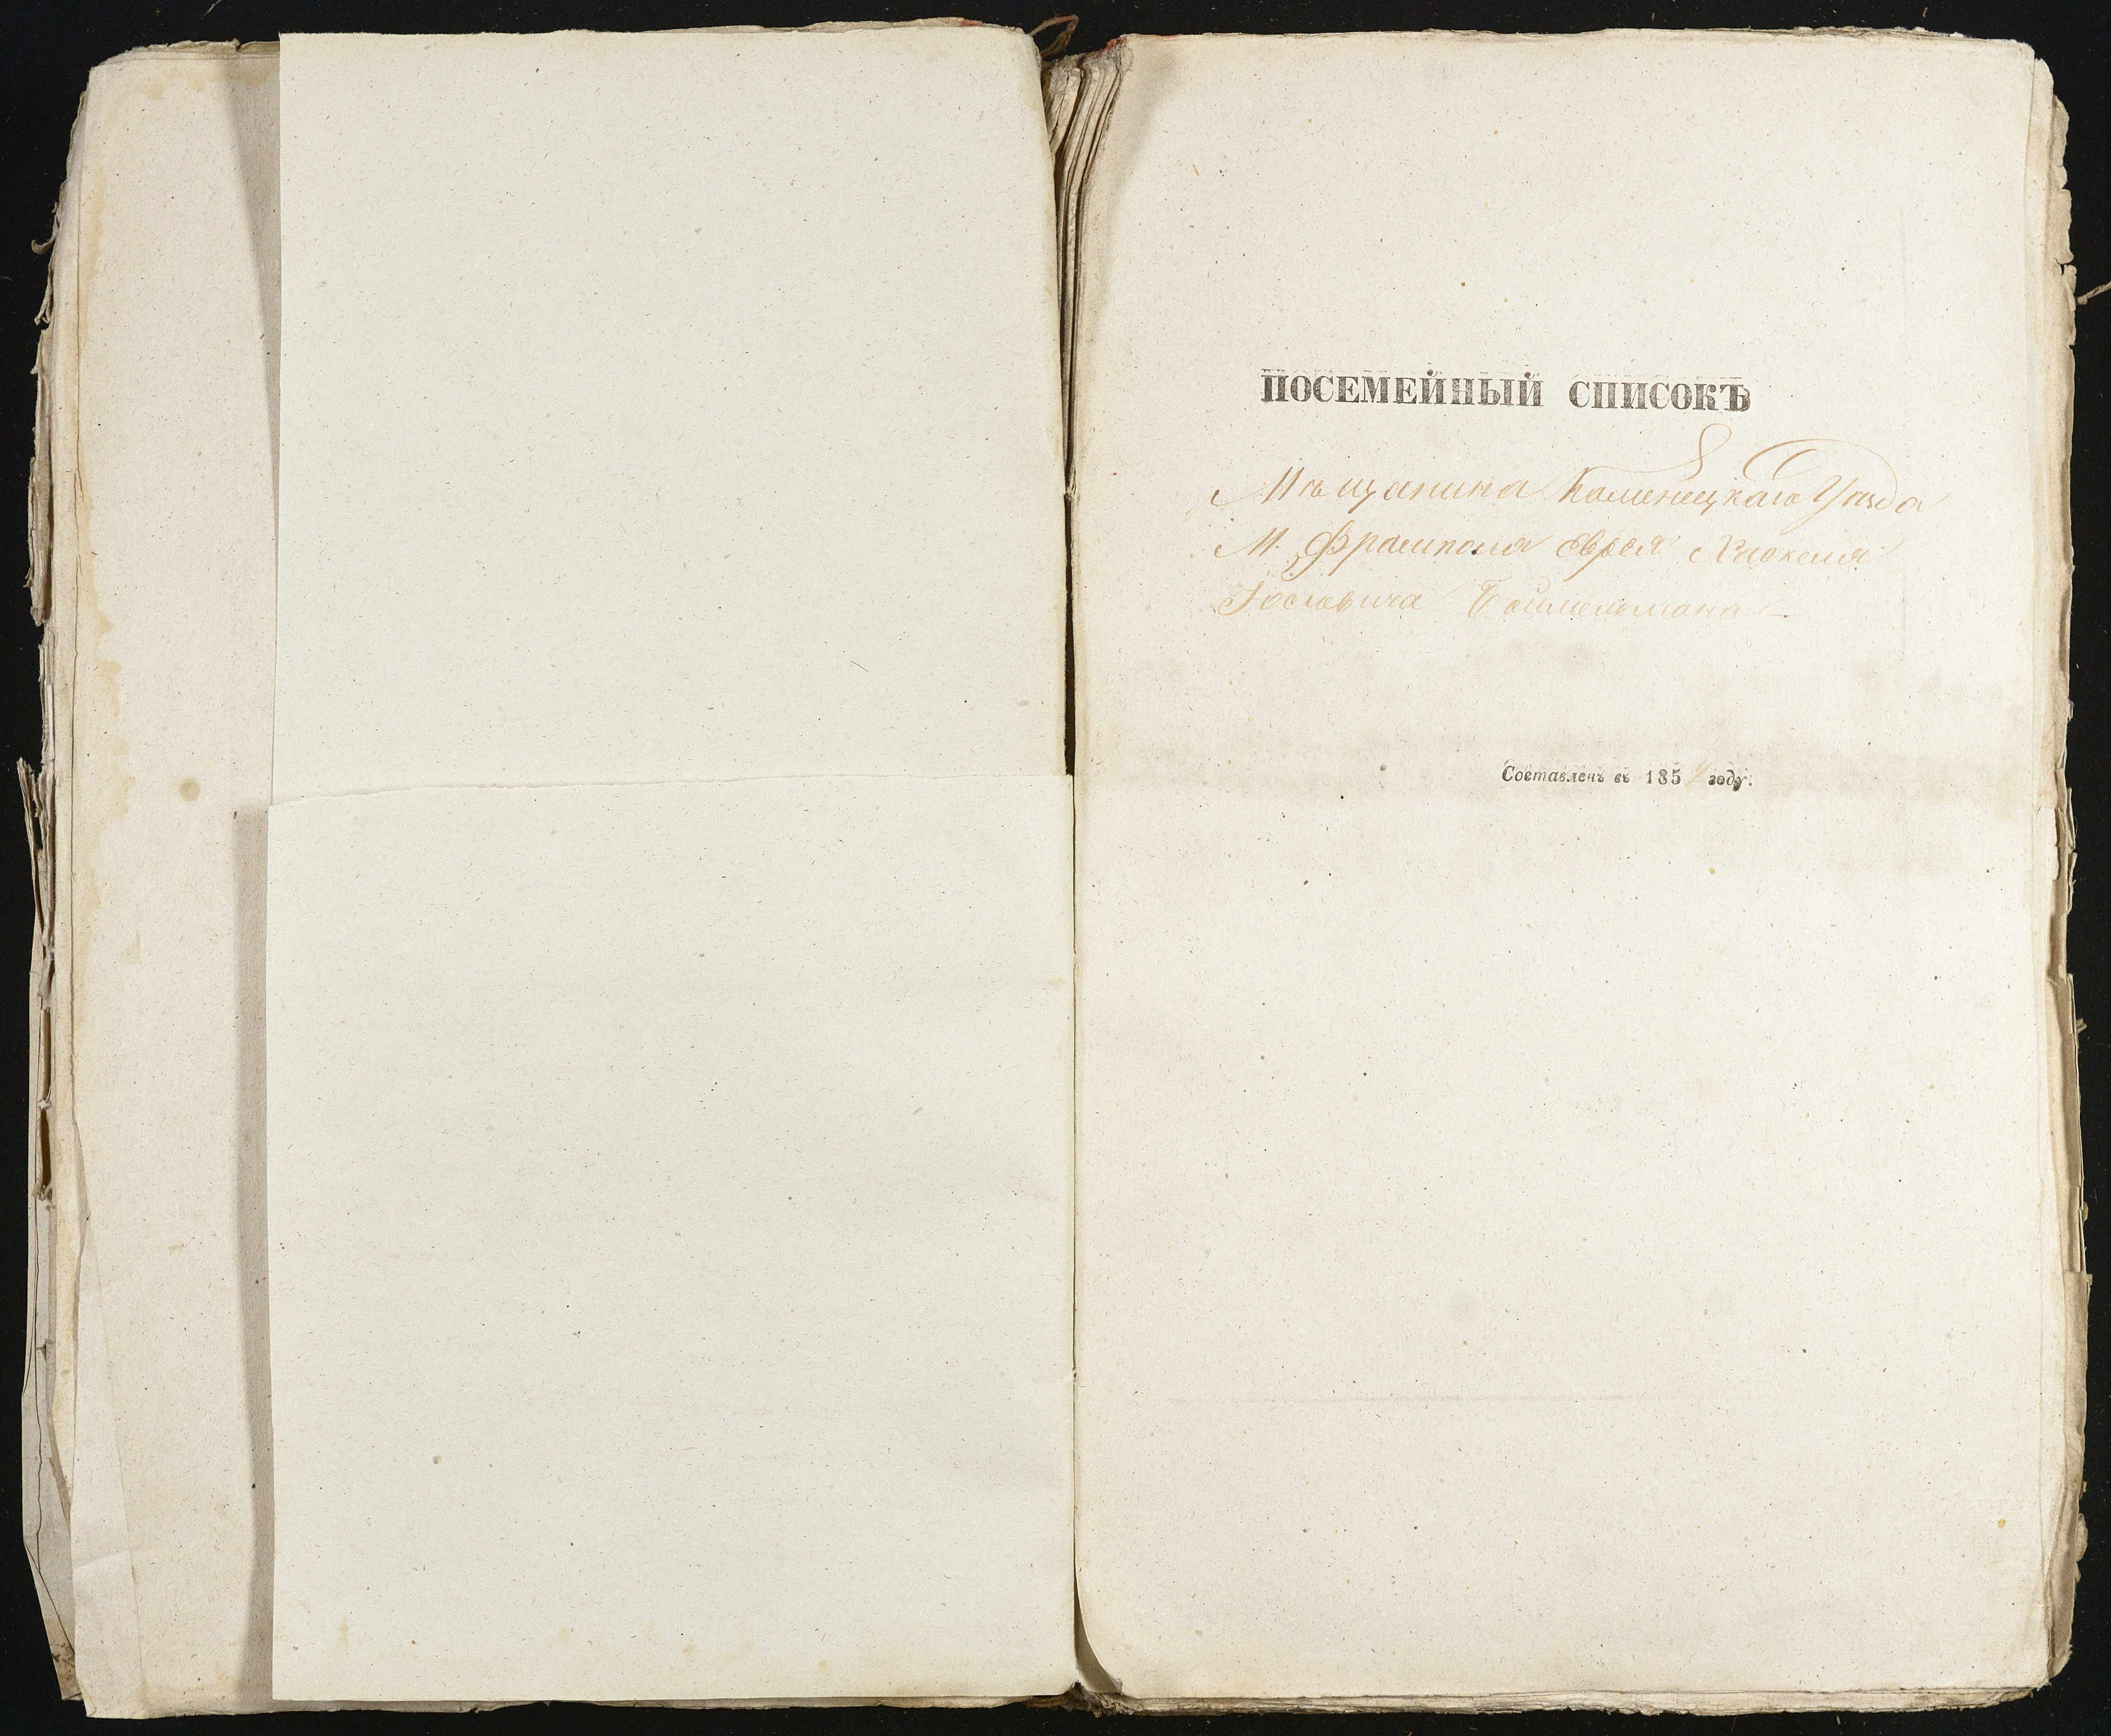 ПОСЕМЕЙНЫЙ СПИСОКЪ
Мѣщанина Каменецкаго Уѣзда
М. Фрамполя еврея Хаскеля
Іосіовича
Составленъ въ 185 году.